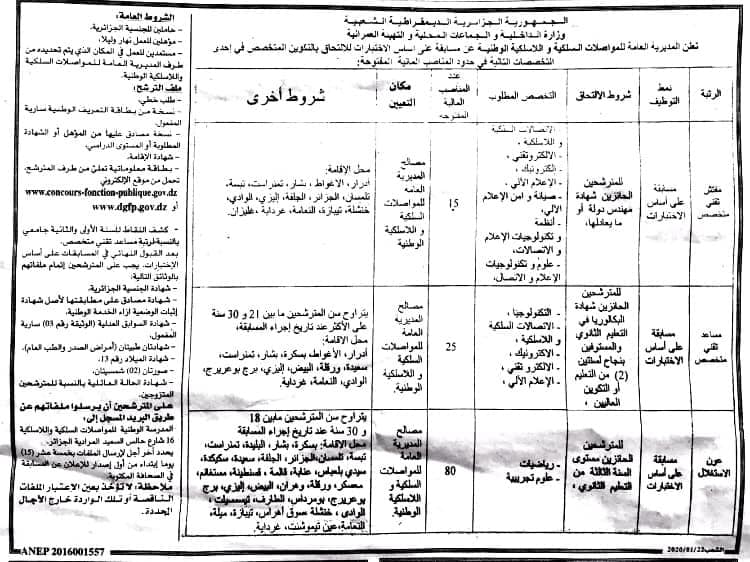 الجمهورية الجزائرية الديمقراطية الشعبية
وزارة الداخلية و الجماعات المحلية و التهيئة العمرانية
تعلن المديرية العامة للمواصلات السلكية و اللاسلكية الوطنية عن مسابقة على اساس الاختبارات للإلتحاق بالتكوين المتخصص في إحدى
التخصصات التالية في حدود المناصب المالية المفتوحة:
الرتبة
نمط
التوظيف
شروط الالتحاق
التخصص المطلوب
عدد
المناصب
المالية
المفتوحة
مكان
التعيين
شروط أخرى
مفتش
تقني
متخصص
مسابقة
على أساس
الاختبارات
للمترشحين
الحائزين شهادة
مهندس دولة أو
ما يعادلها.
- الاتصالات السلكية
و اللاسلكية،
- الالكتروتقني،
- الكترونيك،
- الإعلام الآلي،
- صيانة و امن الإعلام
الآلي،
- أنظمة
و تكنولوجيات الإعلام
و الاتصالات،
- علوم و تكنولوجيات
الإعلام و الاتصال.
15
مصالح
المديرية
العامة
للمواصلات
السلكية
و اللاسلكية
الوطنية
محل الإقامة:
أدرار، الاغواط، بشار، تمنراست، تبسة،
تلمسان، الجزائر، الجلفة، إليزي، الوادي،
خنشلة، تيبازة، النعامة، غرداية، غليزان.
مساعد
تقني
متخصص
مسابقة
على أساس
الاختبارات
للمترشحين
الحائزين شهادة
البكالوريا في
التعليم الثانوي
والمستوفين
بنجاح لسنتين
(2) من التعليم
أو التكوين
العاليين،
- التكنولوجيا،
- الاتصالات السلكية
و اللاسلكية،
- الالكترونيك،
- الالكتروتقني،
- الإعلام الآلي،
25
مصالح
المديرية
العامة
للمواصلات
السلكية
و اللاسلكية
الوطنية.
يتراوح سن المترشحين ما بين 21 و 30 سنة
على الأكثر عند تاريخ إجراء المسابقة،
محل الاقامة:
أدرار، الأغواط، بسكرة، بشار، تمنراست،
سعيدة، ورقلة، البيض، إليزي، برج بوعريريج،
الوادي، النعامة، غرداية.
عون
الاستغلال
مسابقة
على أساس
الاختبارات
للمترشحين
الحائزين مستوى
السنة الثالثة من
التعليم الثانوي،
- رياضيات،
- علوم تجريبية
80
مصالح
المديرية
العامة
للمواصلات
السلكية
و اللاسلكية
الوطنية.
يتراوح سن المترشحين مابين 18
و 30 سنة عند تاريخ إجراء المسابقة
محل الاقامة: بسكرة، بشار، البليدة، تمنراست،
تبسة، تلمسان، الجزائر، الجلفة، سعيدة، سكيكدة،
سيدي بلعباس، عنابة، قالمة، قسنطينة، مستغانم،
معسكر، ورقلة، وهران، البيض، إليزي، برج
بوعريريج، بومرداس، الطارف، تيسمسيلت،
الوادي، خنشلة، سوق أهراس، تيبازة، ميلة،
النعامة، عين تيموشنت، غرداية.
الشروط العامة:
- حاملين للجنسية الجزائرية.
- مؤهلين للعمل نهارا وليلا،
- مستعدين للعمل في المكان الذي يتم تحديده من
طرف المديرية العامة للمواصلات السلكية
واللاسلكية الوطنية.
ملف الترشح:
- طلب خطي.
- نسخة من بطاقة التعريف الوطنية سارية
المفعول.
- نسخة مصادق عليها من المؤهل أو الشهادة
المطلوبة أو مستوى الدراسي.
- شهادة الإقامة.
- بطاقة معلوماتية تملئ من طرف المترشح،
تحمل من موقع الإلكتروني
www.concours-fonction-publique.gov.dz
أو www.dgfp.gov.dz
- كشف النقاط للسنة الأولى والثانية جامعي
بالنسبة لرتبة مساعد تقني متخصص.
بعد القبول النهائي في المسابقات على أساس
الإختبارات، يجب على المترشحين إتمام ملفاتهم
بالوثائق التالية:
- شهادة الجنسية الجزائرية.
- شهادة مصادق على مطابقتها لأصل شهادة
إثبات الوضعية إزاء الخدمة الوطنية.
- شهادة السوابق العدلية (الوثيقة رقم 03) سارية
المفعول.
- شهادتان طبيتان (أمراض الصدر والطب العام).
- شهادة الميلاد رقم 13.
- صورتان (02) شمسيتان.
- شهادة الحالة العائلية بالنسبة للمترشحين
المتزوجين.
على المترشحين أن يرسلوا ملفاتهم عن
طريق البريد المسجل إلى:
المدرسة الوطنية للمواصلات السلكية واللاسلكية
16 شارع حالس السعيد المرادية الجزائر.
يحدد آخر أجل لإرسال الملفات بخمسة عشر (15)
يوما إبتداء من أول إصدار للإعلان عن المسابقة
في الصحافة المكتوبة.
ملاحظة: لا تؤخذ بعين الاعتبار الملفات
الناقصة أو تلك الواردة خارج الآجال
المحددة.
ANEP 2016001557
الشعب 2020/01/22